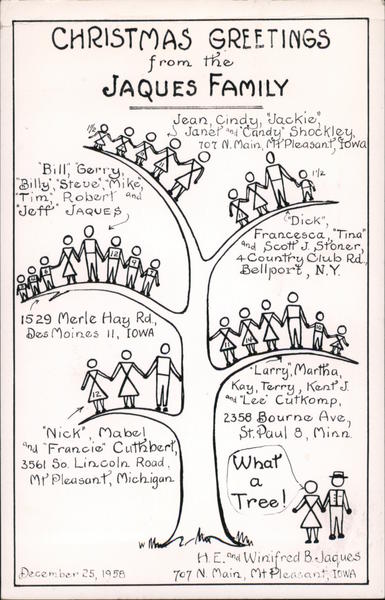 CHRISTMAS GREETINGS
from the
JAQUES FAMILY
Jean, Cindy, "Jackie",
Janet and "Candy" Shockley,
707 N. Main, Mt Pleasant, Iowa
1½
"Bill", Gerry,
"Billy", "Steve", Mike,
"Tim", Robert and
"Jeff" JAQUES
1½
"Dick",
Francesca, "Tina"
and Scott J. Stoner,
4 Country Club Rd.,
Bellport, N.Y.
1529 Merle Hay Rd,
Des Moines 11, IOWA
"Larry", Martha,
Kay, Terry, Kent J.
and "Lee" Cutkomp,
2358 Bourne Ave,
St. Paul 8, Minn.
12
"Nick", Mabel
and "Francie" Cuthbert,
3561 So. Lincoln Road,
Mt Pleasant, Michigan
What
a
Tree!
H. E. and Winifred B. Jaques
707 N. Main, Mt Pleasant, IOWA
December 25, 1958